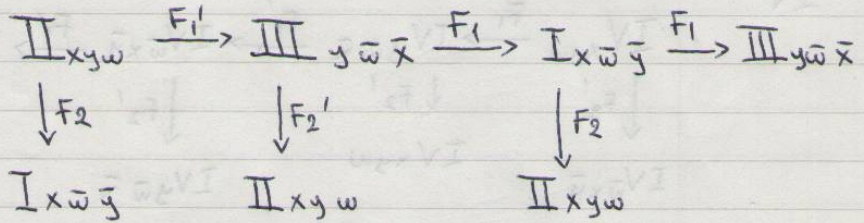 II xyω F₁' → III y ω̄ x̄ F₁ → I x ω̄ ȳ F₁ → III y ω̄ x̄
↓ F₂ ↓ F₂' ↓ F₂
I x ω̄ ȳ II x y ω II x y ω